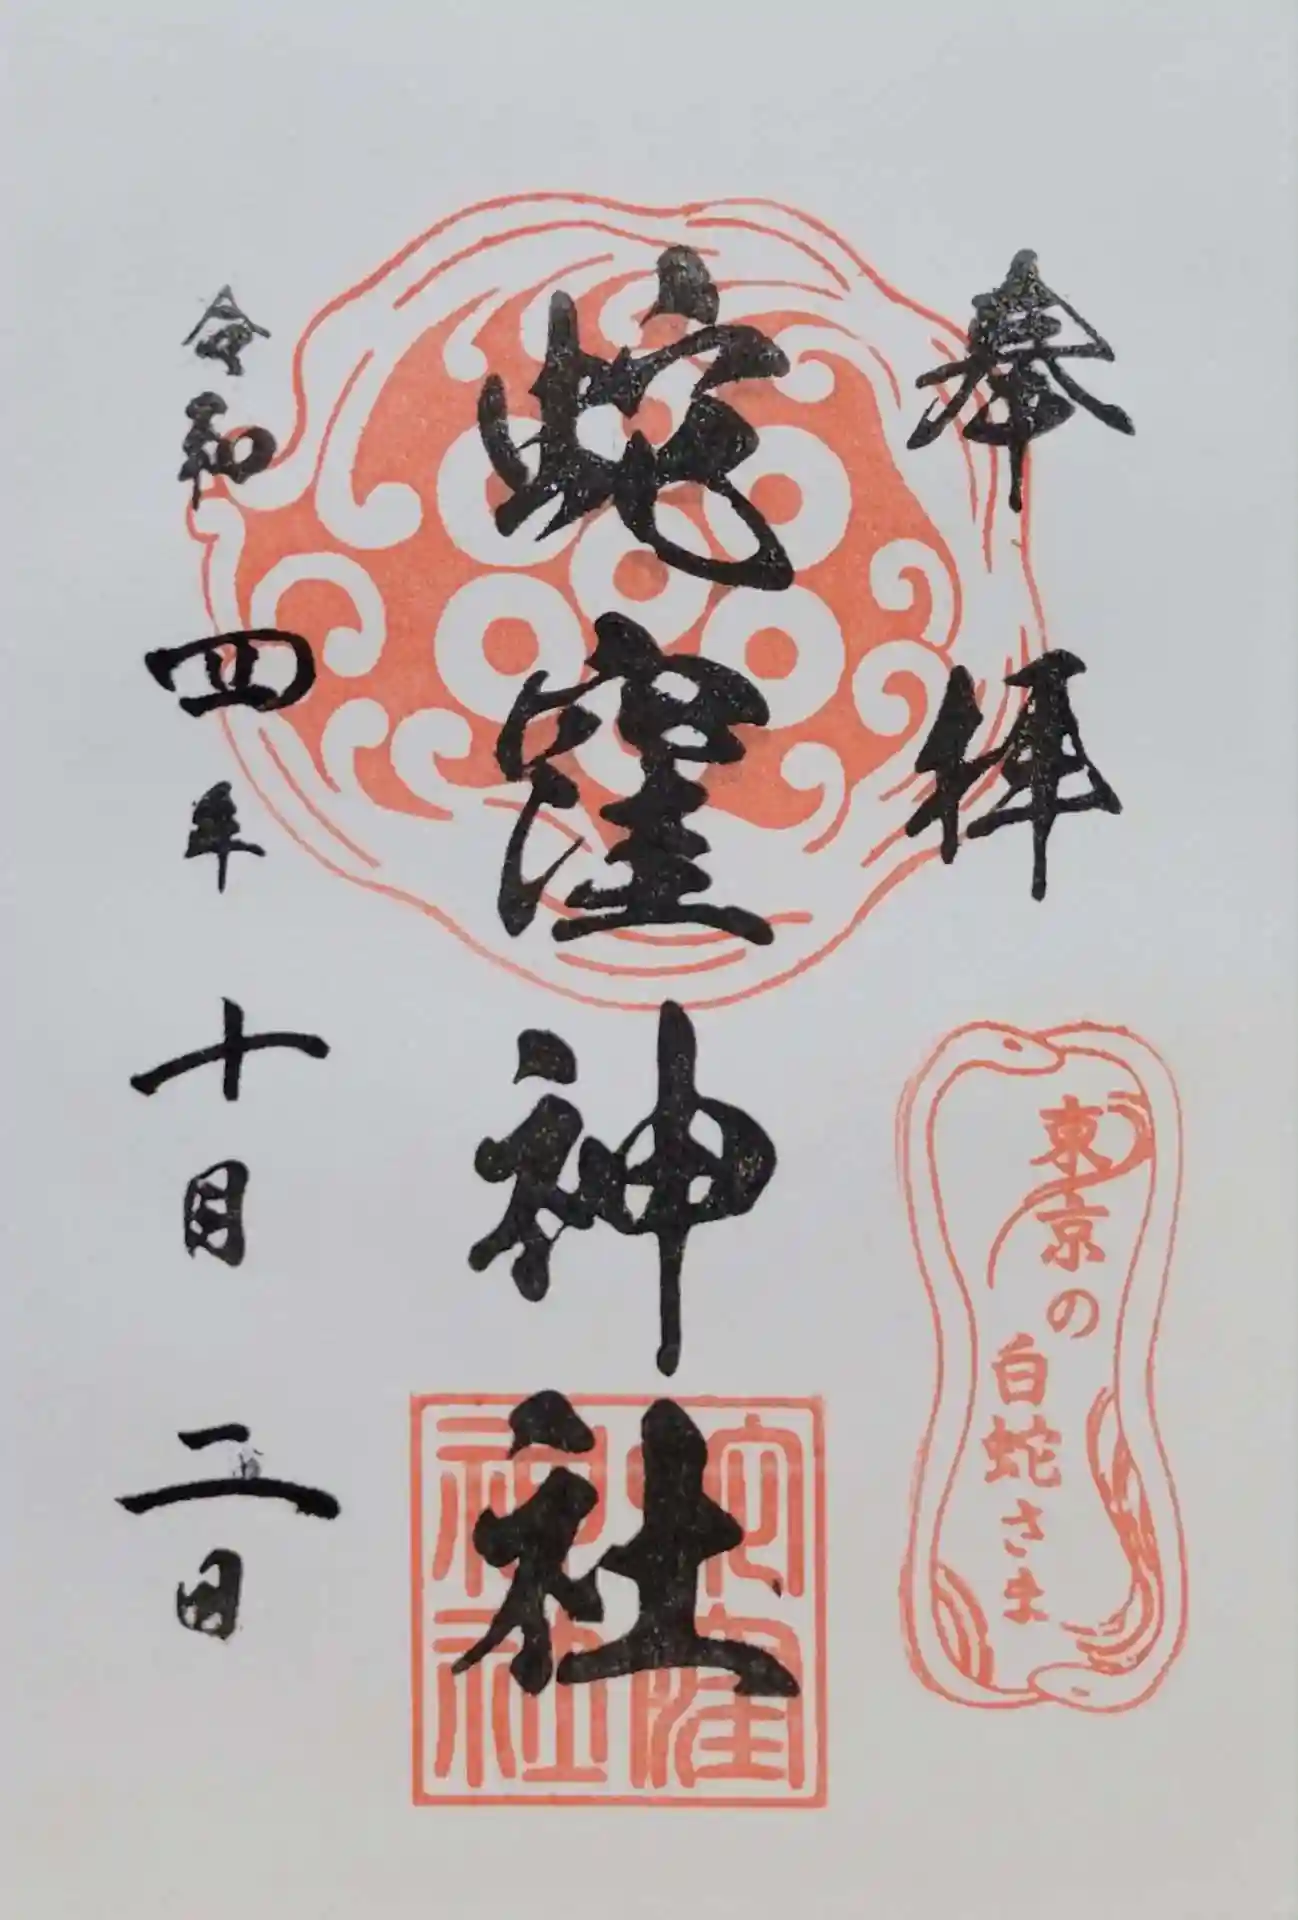 奉拝
東京の
白蛇さま
蛇窪神社
蛇窪
神社
令和四年十月二日